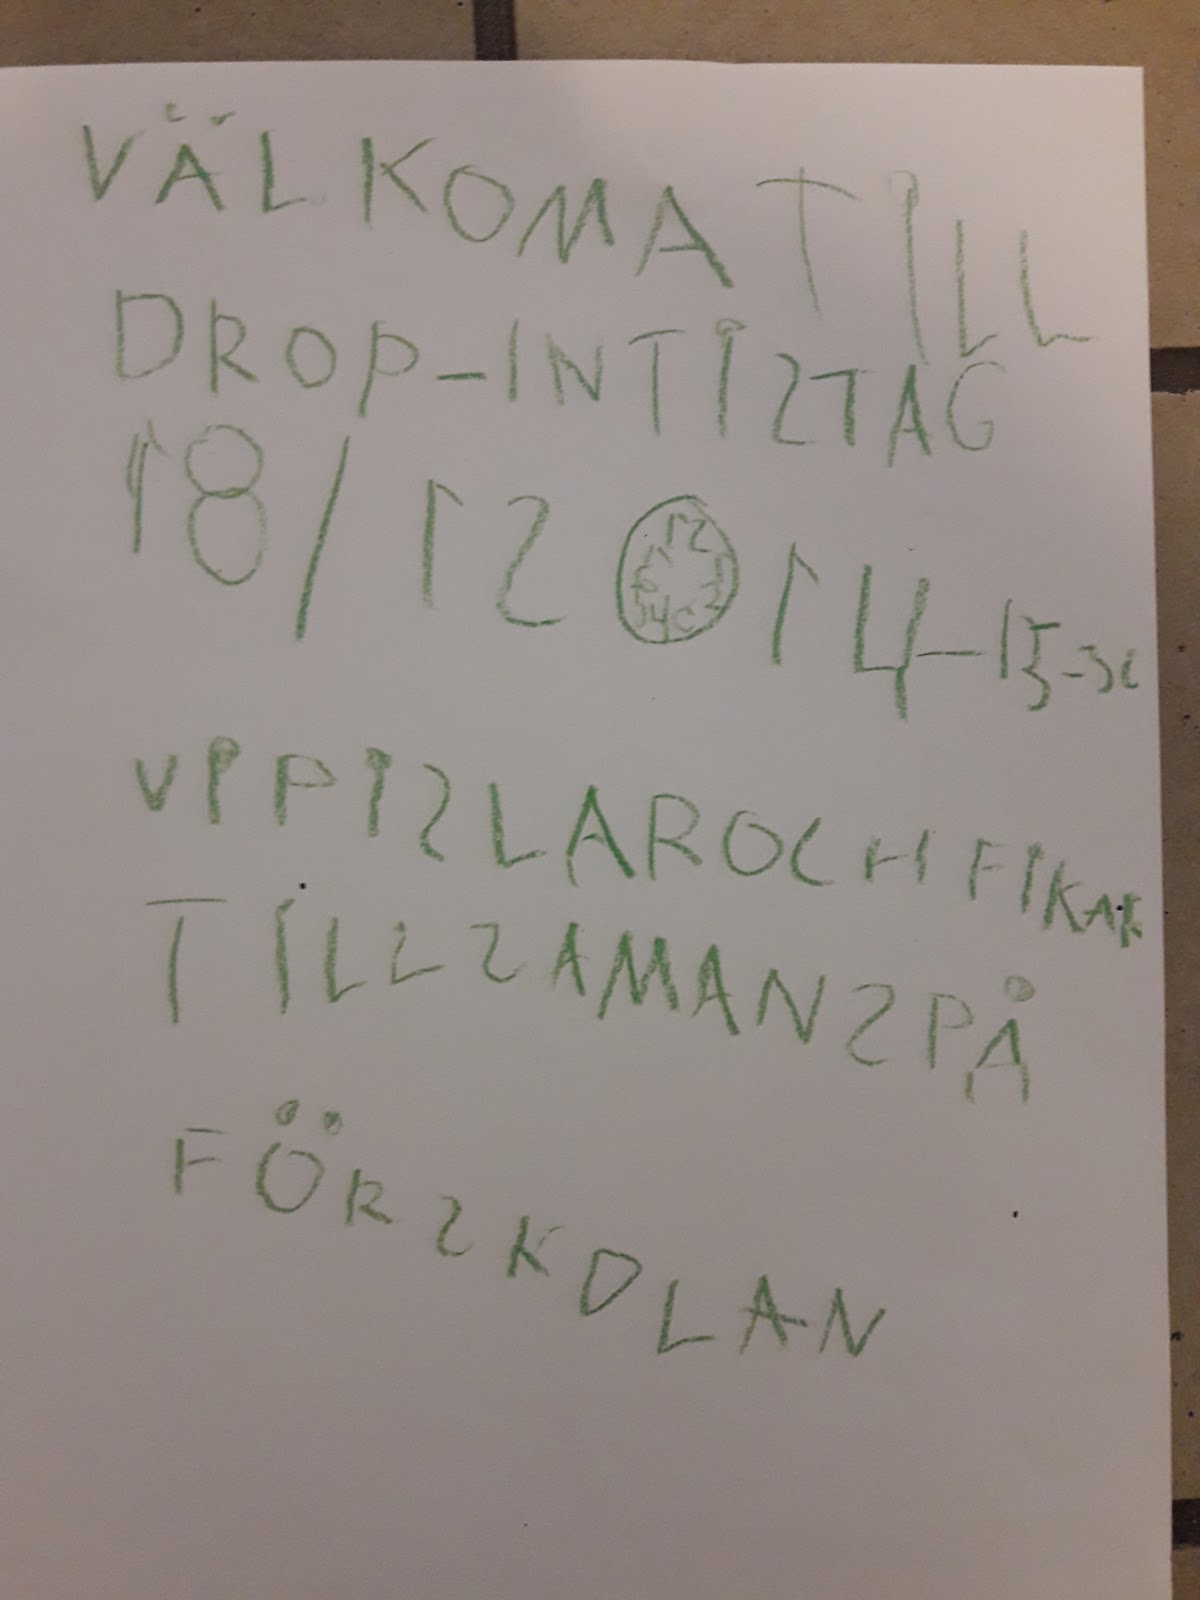 VÄLKOMA TILL
DROP-IN TISTAG
18/12 14-15-30
VI PISLAR OCH FIKAR
TILLSAMANS PÅ
FÖRSKOLAN